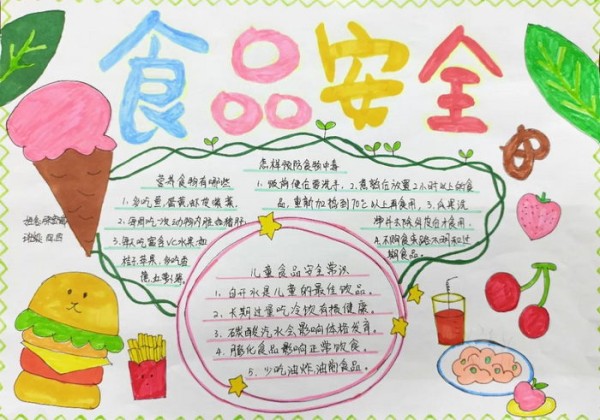 食品安全
怎样预防食物中毒
1. 饭前便后要洗手。2. 煮熟后放置2小时以上的食
品，重新加热到70℃以上再食用。3. 瓜果洗
净并去除外皮后才食用。
4. 不购食来路不明和过
期食品。
营养食物有哪些
1. 多吃鱼、蛋黄、虾皮
2. 每周吃一次动物内脏如猪肝。
3. 富含VC水果如
桔子、苹果，多吃
儿童食品安全常识
1. 白开水是儿童的最佳饮品。
2. 长期过量吃冷饮有损健康。
3. 碳酸汽水会影响体格发育。
4. 膨化食品影响正常吹食。
5. 少吃油炸、油闷食品。